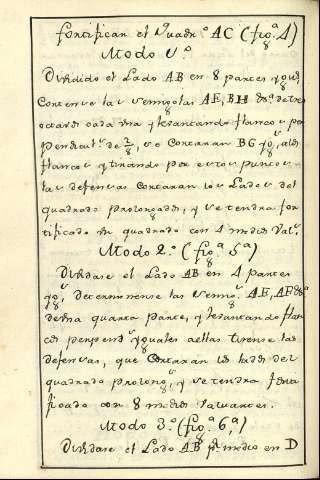 fortifican el quadr.º AC (fig.ª 4)
Modo 1.º
Dividido el Lado AB en 8 partes yguˢ
Contense las semigolas AE, BH dsª de tres
octavas cada una y levantando flancos per
pendicul.ˢ de 2/8, se cortaran BG yg.ˢ, alos
flancos y tirando por estos puncos
las defensas Cortaran los Lados del
quadrado prolongados, y se tendra for
tificado un quadrado con 4 medios Val.ˢ
Modo 2.º (fig.ª 5ª)
Dividase el Lado AB en 4 partes
yg.ˢ, determinense las semig.ˢ AE, AF dsª
de una quarta parte, y levantando flan
cos perpend.ˢ yguales a ellas tirense las
defensas, que Cortaran los lados del
quadrado prolong.ˢ, y se tendra forti
ficado con 8 medios Valuartes.
Modo 3.º (fig.ª 6ª,)
Dividase el Lado AB pr medio en D